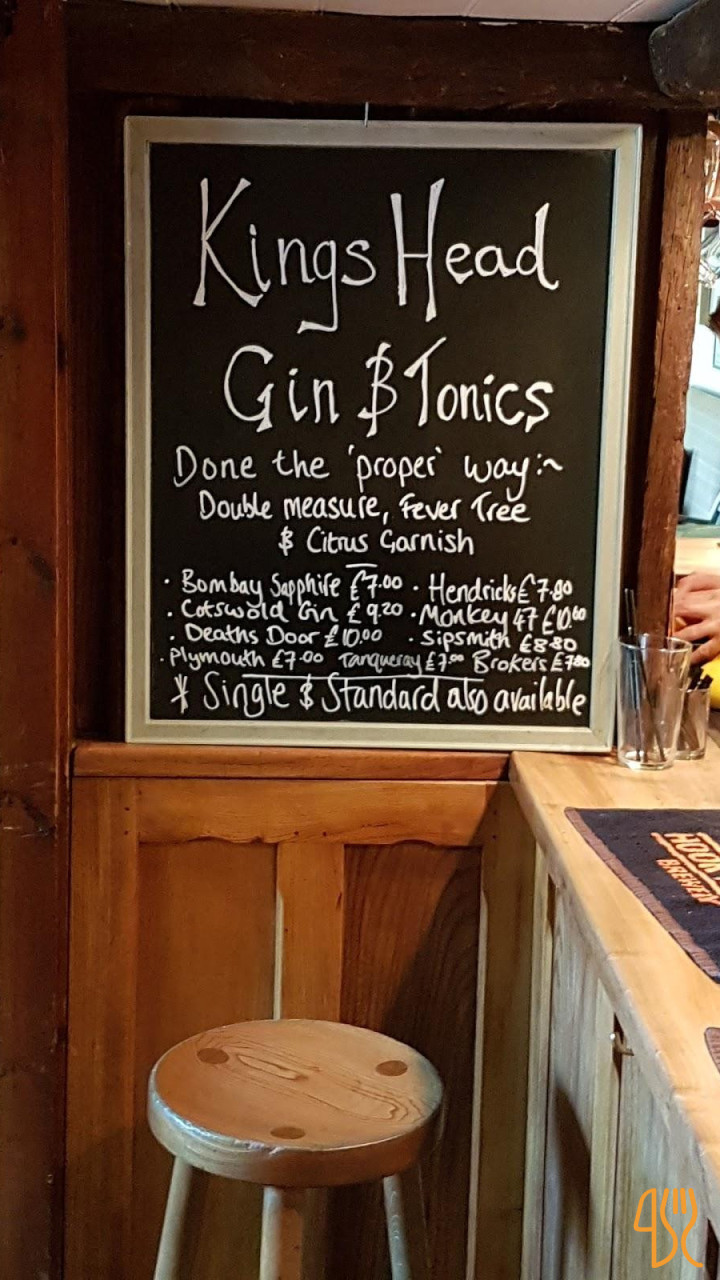 Kings Head
Gin & Tonics
Done the 'proper' way:~
Double measure, Fever Tree
& Citrus Garnish
· Bombay Sapphire £7.00 · Hendricks £7.80
· Cotswold Gin £9.20 · Monkey 47 £10.60
· Deaths Door £10.00 · Sipsmith £8.80
· Plymouth £7.00 Tanqueray £7.00 Brokers £7.80
* Single & Standard also available
HOOK
BREWERY